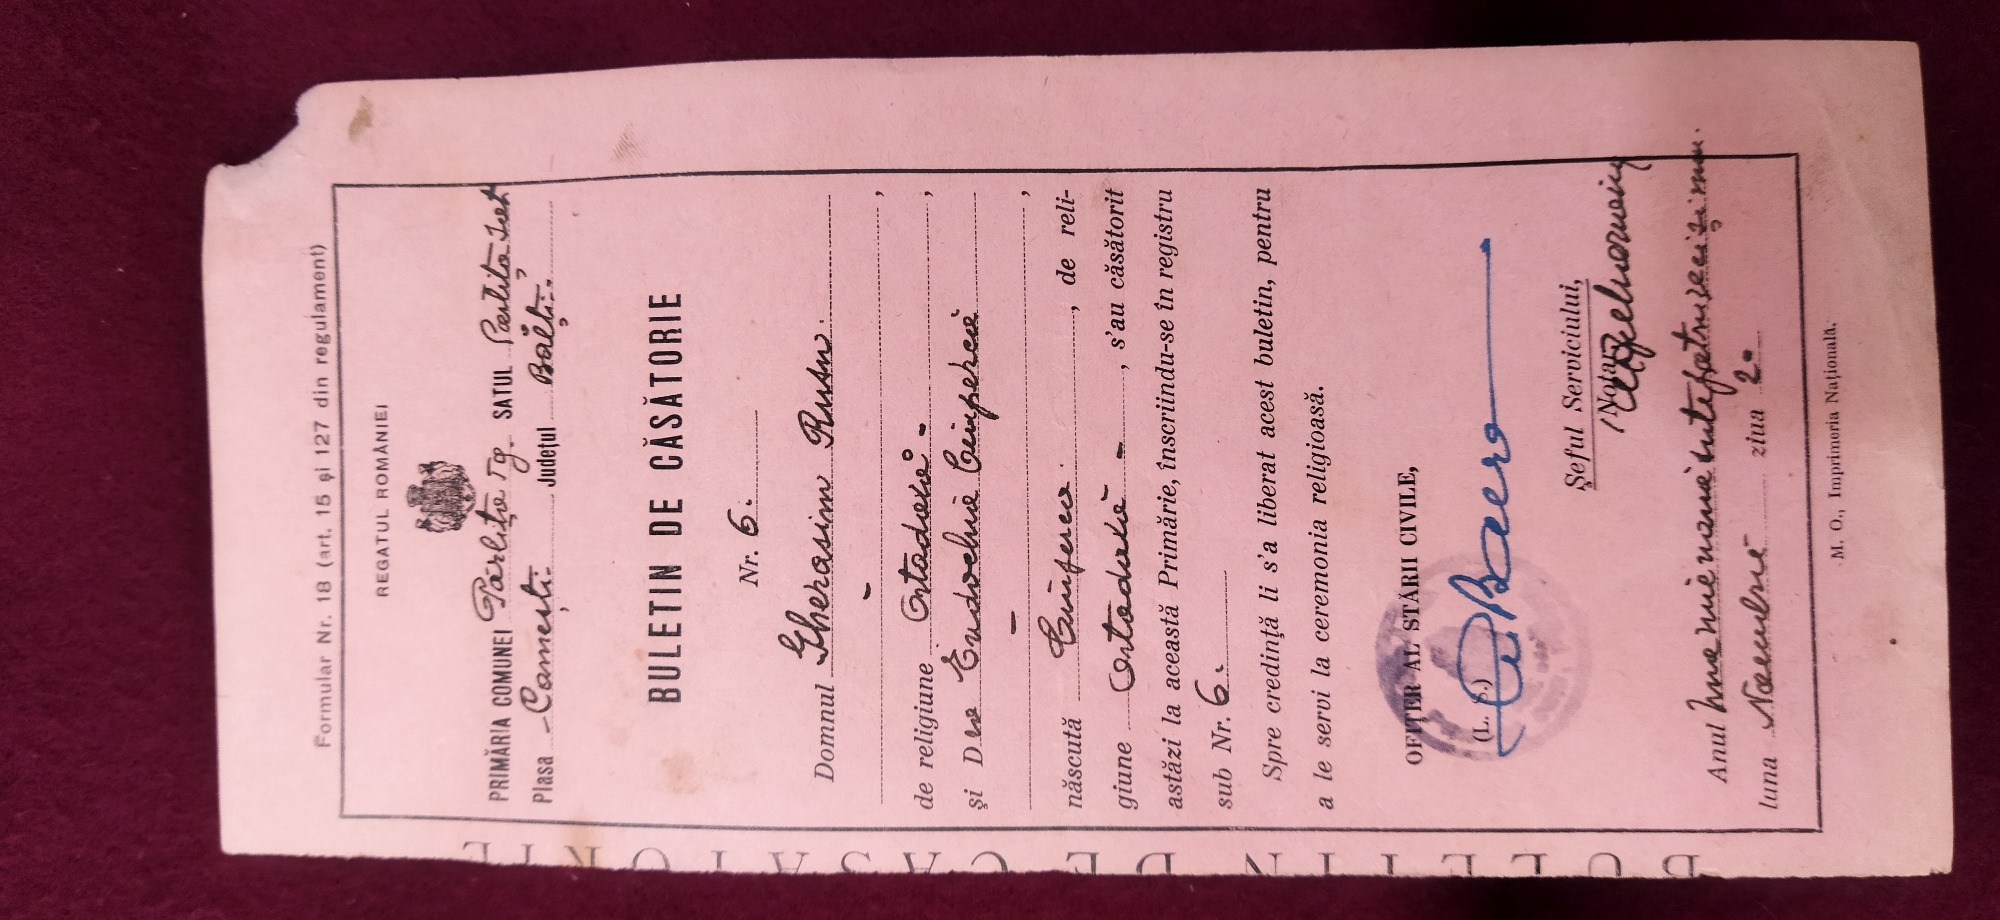 Formular Nr. 18 (art. 15 și 127 din regulament)
REGATUL ROMÂNIEI
PRIMĂRIA COMUNEI Pârlița Tg. SATUL Pârlița
Plasa Cornești. Județul Bălți.
BULETIN DE CĂSĂTORIE
Nr. 6.
Domnul Gherasim Rusu.
-
de religiune Ortodoxă -,
și D Eudochia
-
născută, de reli-
giune Ortodoxă -, s'au căsătorit
astăzi la această Primărie, înscriindu-se în registru
sub Nr. 6.
Spre credință li s'a liberat acest buletin, pentru
a le servi la ceremonia religioasă.
OFIȚER AL STĂRII CIVILE,
(L. S.)
Șeful Serviciului,
Notar
Anul
luna ziua 2.
M. O., Imprimeria Națională.
BULETIN DE CĂSĂTORIE